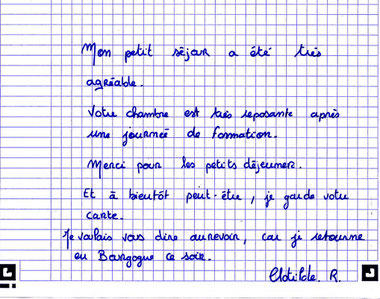 Mon petit séjour a été très
agréable.
Votre chambre est très reposante après
une journée de formation.
Merci pour les petits déjeuners.
Et à bientôt peut-être, je garde votre
carte.
Je voulais vous dire aurevoir, car je retourne
en Bourgogne ce soir.
Clotilde. R.